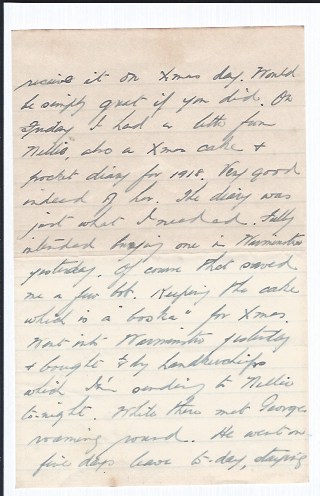 receive it on Xmas day. Would
be simply great if you did. On
Friday I had a letter from
Nellie, also a Xmas cake &
pocket diary for 1918. Very good
indeed of her. The diary was
just what I needed. Fully
intended buying one in Warminster
yesterday. Of course that saved
me a few bob. Keeping the cake
which is a "boska" for Xmas.
Went into Warminster yesterday
& bought handkerchiefs
which I'm sending to Nellie
to-night. While there met George
roaming round. He went on
five days leave to-day, staying